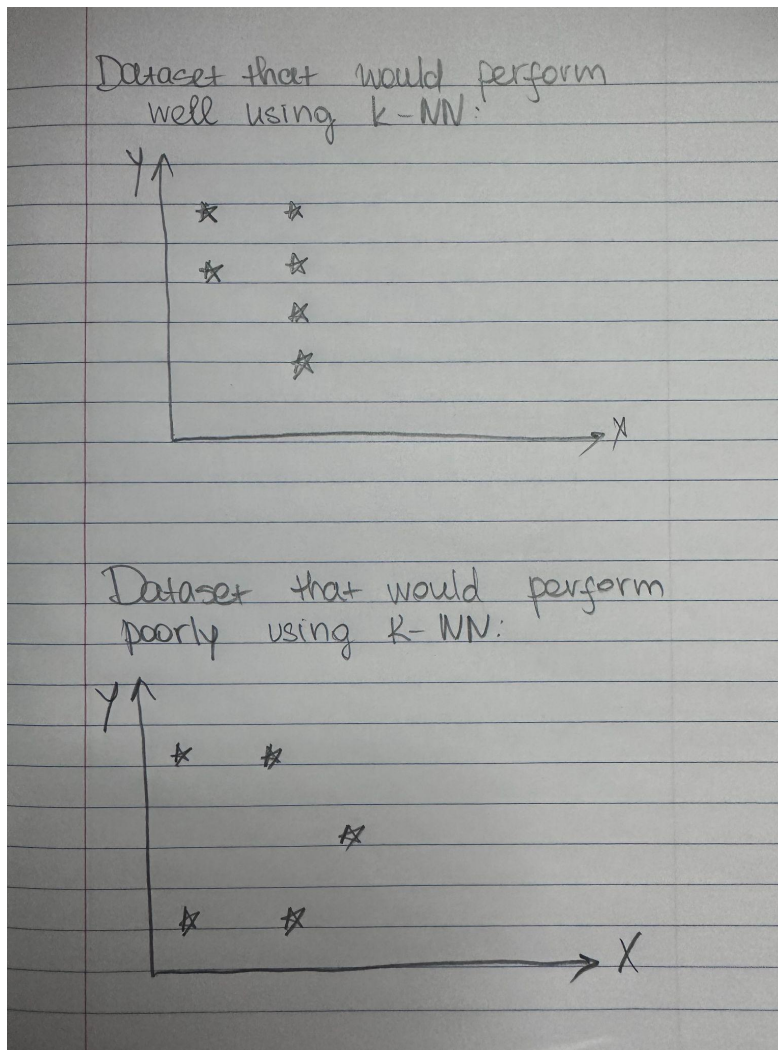 Dataset that would perform
well using k-NN:
Y
X
Dataset that would perform
poorly using k-NN:
Y
X